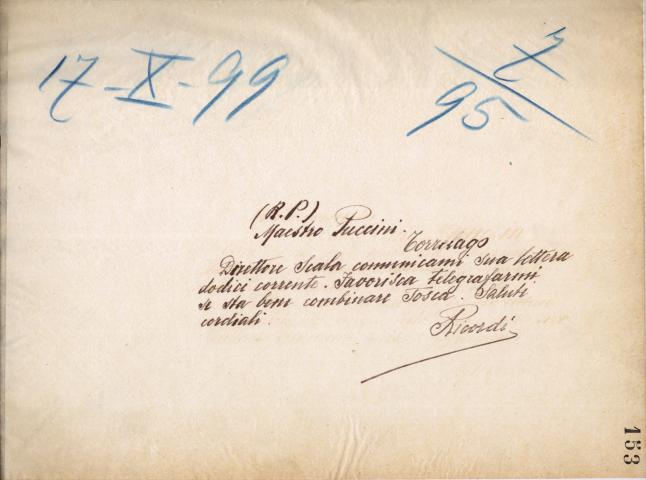 17-X-99
X
95
(R.P.)
Maestro Puccini.
Torrelago
Direttore Scala comunicami sua lettera
dodici corrente. Favorisca telegrafarmi
se sta bene combinare Tosca. Saluti
cordiali.
Ricordi
153